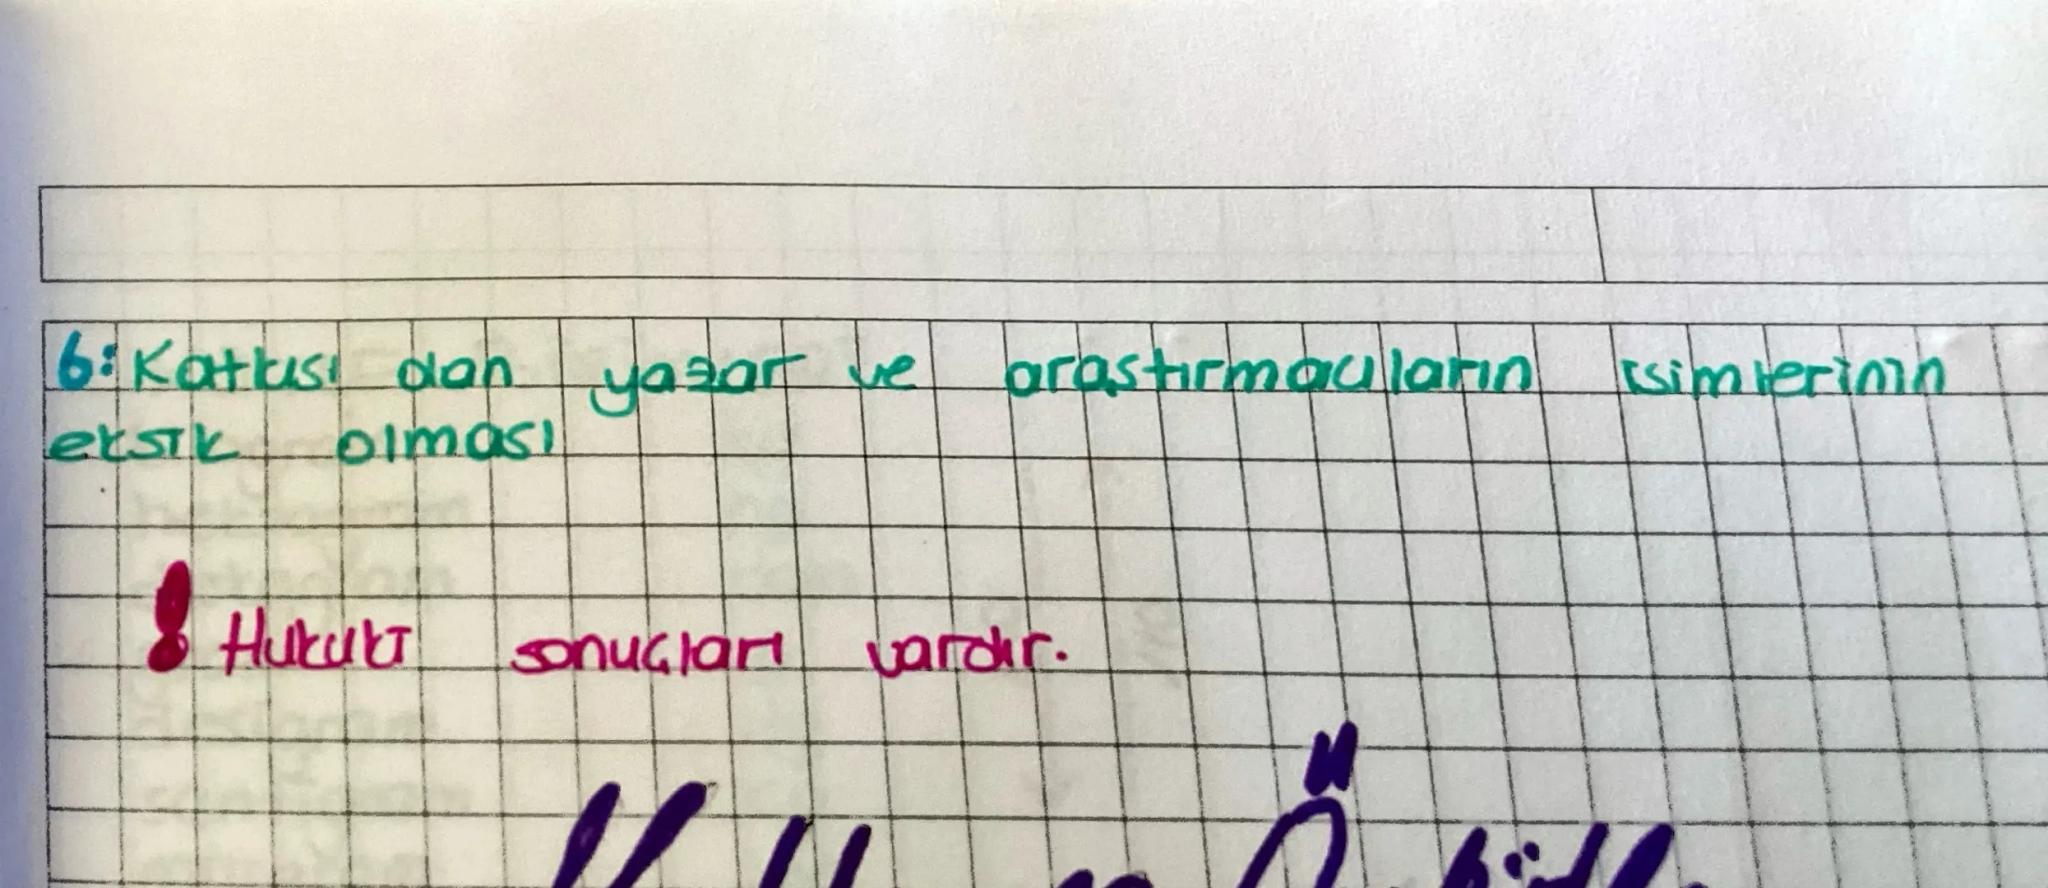 6: Katkısı olan yazar ve araştırmacıların isimlerinin
eksik olması
! Hukuki sonuçları vardır.